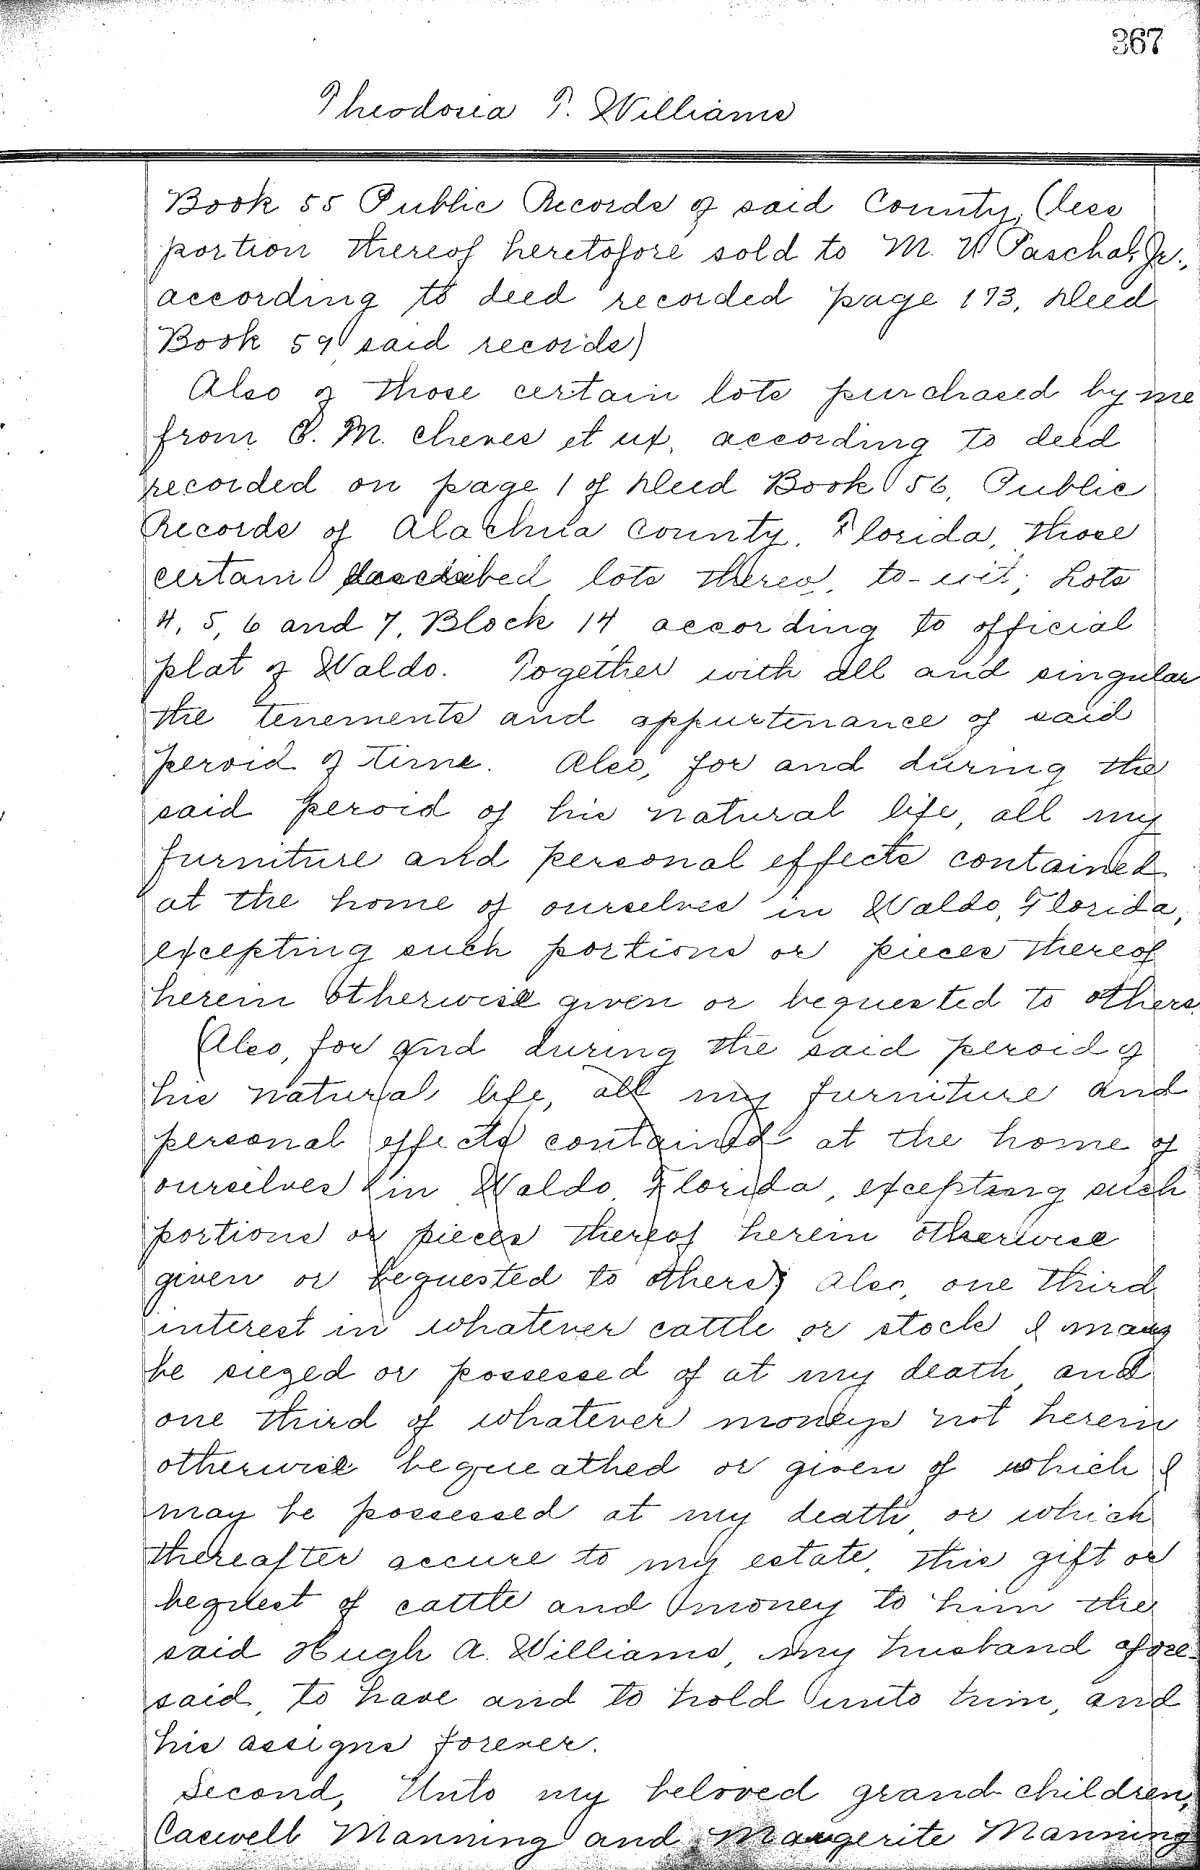 367
Theodosia T. Williams
Book 55 Public Records of said County, (less
portion thereof heretofore sold to M. W Paschal, Jr.,
according to deed recorded page 173, Deed
Book 59 said records)
Also of those certain lots purchased by me
from C. M. Cheves et ux, according to deed
recorded on page 1 of Deed Book 56, Public
Records of Alachua County, Florida, those
certain described lots thereo, to-wit; Lots
4, 5, 6 and 7, Block 14 according to official
plat of Waldo. Together with all and singular
the tenements and appurtenance of said
peroid of time. Also, for and during the
said peroid of his natural life, all my
furniture and personal effects contained
at the home of ourselves in Waldo, Florida,
excepting such portions or pieces thereof
herein otherwise given or bequested to others
(Also, for and during the said peroid of
his natural life, all my furniture and
personal effects contained at the home of
ourselves in Waldo, Florida, excepting such
portions or pieces thereof herein otherwise
given or bequested to others) Also, one third
interest in whatever cattle or stock I may
be siezed or possessed of at my death, and
one third of whatever moneys not herein
otherwise bequeathed or given of which I
may be possessed at my death, or which
thereafter accure to my estate, this gift or
bequest of cattle and money to him the
said Hugh A. Williams, my husband afore-
said, to have and to hold unto him, and
his assigns forever.
Second, Unto my beloved grand children,
Caswell Manning and Margerite Manning